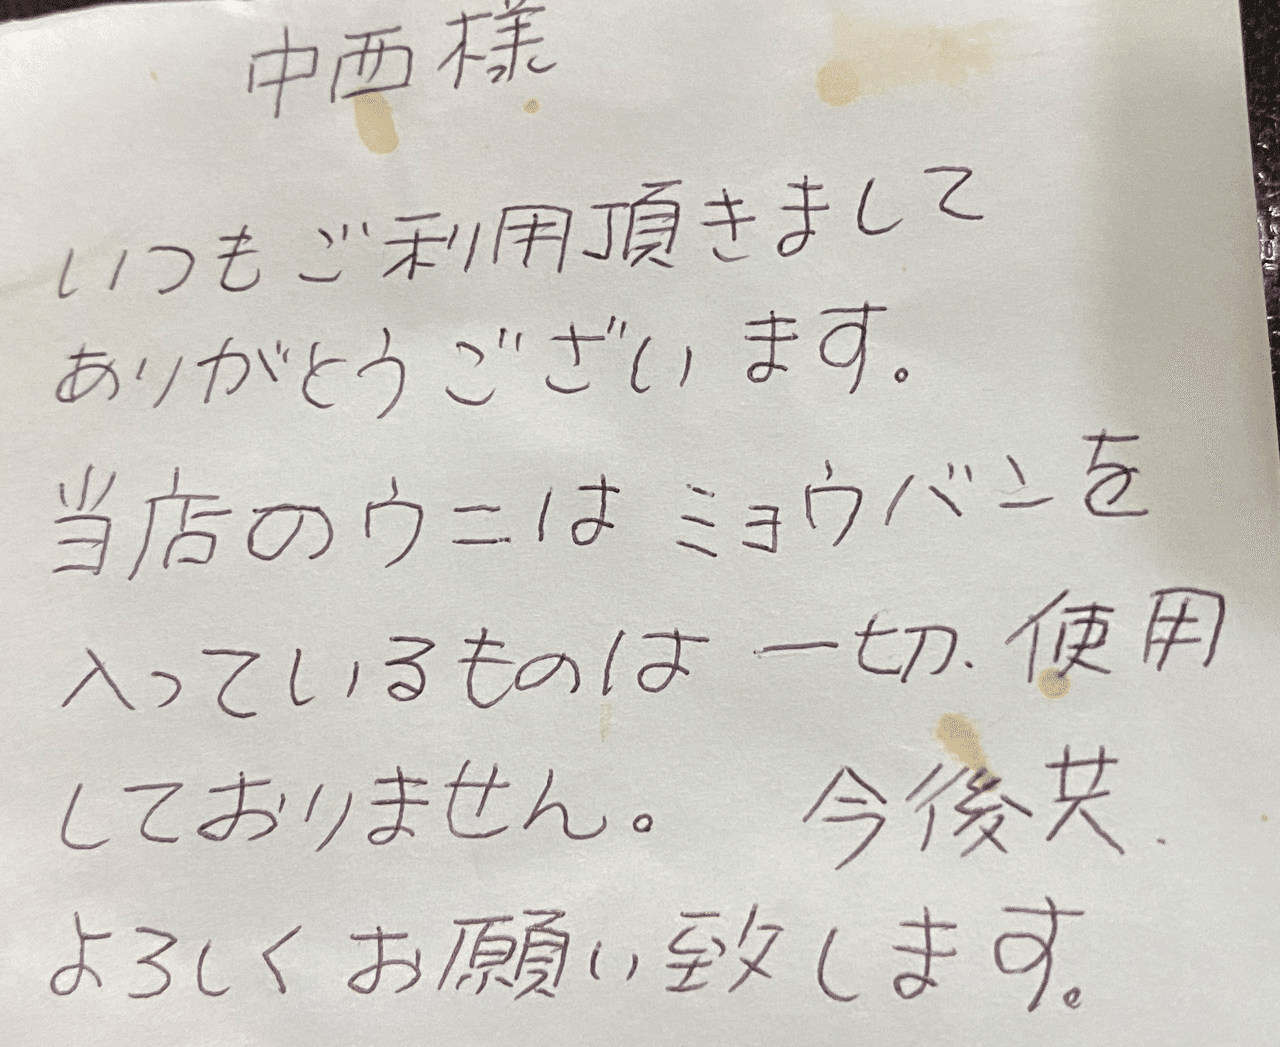 中西様
いつもご利用頂きまして
ありがとうございます。
当店のウニはミョウバンを
入っているものは一切、使用
しておりません。 今後共、
よろしくお願い致します。